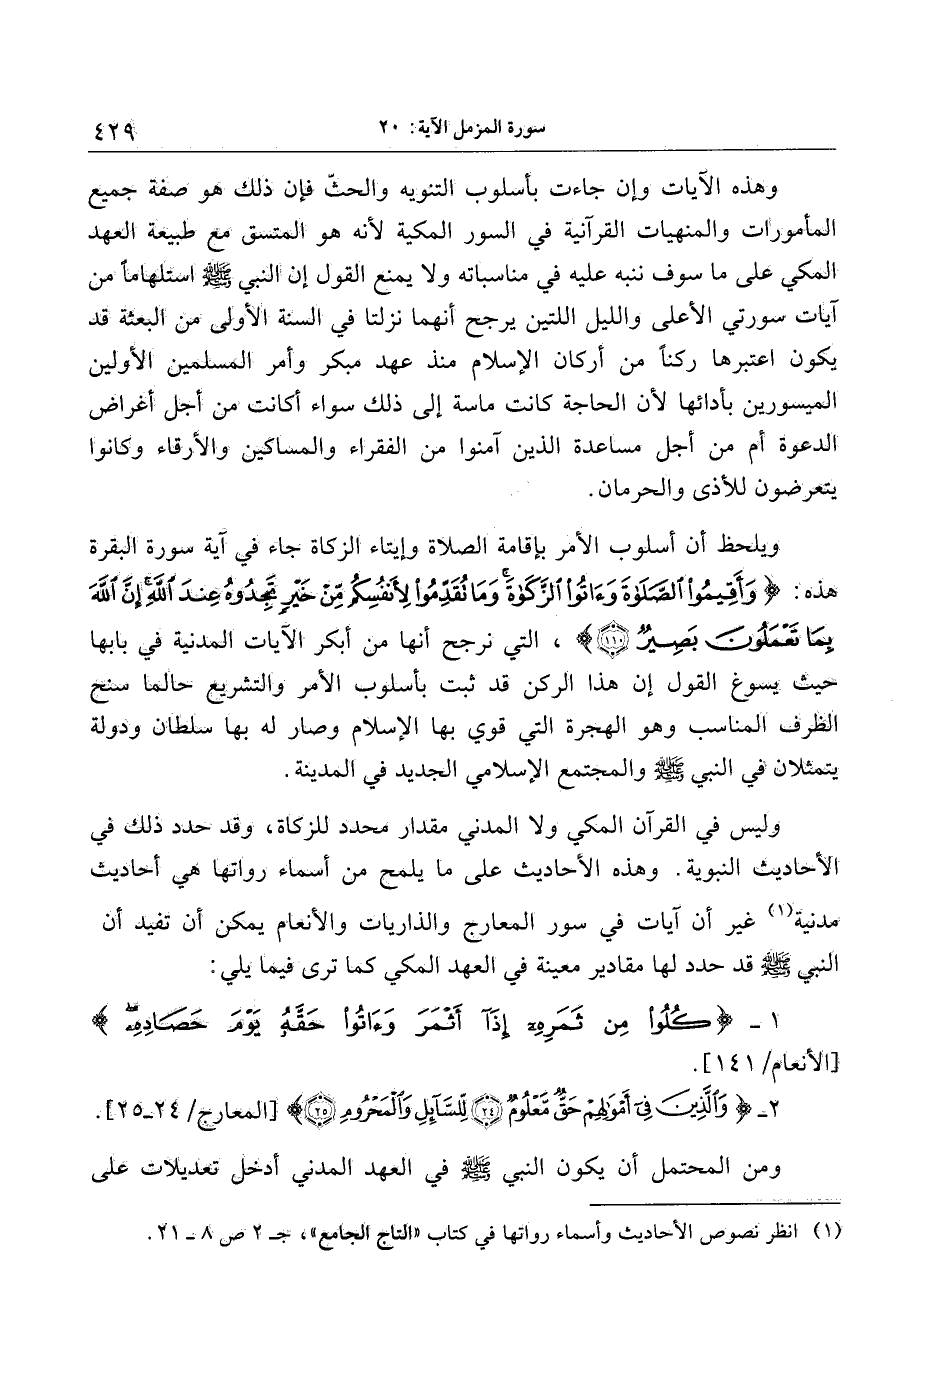 سورة المزمل الآية: ٢٠
٤٢٩
وهذه الآيات وإن جاءت بأسلوب التنويه والحثّ فإن ذلك هو صفة جميع
المأمورات والمنهيات القرآنية في السور المكية لأنه هو المتسق مع طبيعة العهد
المكي على ما سوف ننبه عليه في مناسباته ولا يمنع القول إن النبي ﷺ استلهاماً من
آيات سورتي الأعلى والليل اللتين يرجح أنهما نزلتا في السنة الأولى من البعثة قد
يكون اعتبرها ركناً من أركان الإسلام منذ عهد مبكر وأمر المسلمين الأولين
الميسورين بأدائها لأن الحاجة كانت ماسة إلى ذلك سواء أكانت من أجل أغراض
الدعوة أم من أجل مساعدة الذين آمنوا من الفقراء والمساكين والأرقاء وكانوا
يتعرضون للأذى والحرمان.
ويلحظ أن أسلوب الأمر بإقامة الصلاة وإيتاء الزكاة جاء في آية سورة البقرة
هذه: ﴿ وَأَقِيمُوا۟ ٱلصَّلَوٰةَ وَءَاتُوا۟ ٱلزَّكَوٰةَ ۚ وَمَا نُقَدِّمُوا۟ لِأَنفُسِكُم مِّنْ خَيْرٍ تَجِدُوهُ عِندَ ٱللَّهِ ۗ إِنَّ ٱللَّهَ
بِمَا تَعْمَلُونَ بَصِيرٌ ﴿١١٠﴾ ﴾ ، التي نرجح أنها من أبكر الآيات المدنية في بابها
حيث يسوغ القول إن هذا الركن قد ثبت بأسلوب الأمر والتشريع حالما سنح
الظرف المناسب وهو الهجرة التي قوي بها الإسلام وصار له بها سلطان ودولة
يتمثلان في النبي ﷺ والمجتمع الإسلامي الجديد في المدينة.
وليس في القرآن المكي ولا المدني مقدار محدد للزكاة، وقد حدد ذلك في
الأحاديث النبوية. وهذه الأحاديث على ما يلمح من أسماء رواتها هي أحاديث
مدنية(١) غير أن آيات في سور المعارج والذاريات والأنعام يمكن أن تفيد أن
النبي ﷺ قد حدد لها مقادير معينة في العهد المكي كما ترى فيما يلي:
١ - ﴿ كُلُوا۟ مِن ثَمَرِهِۦٓ إِذَآ أَثْمَرَ وَءَاتُوا۟ حَقَّهُۥ يَوْمَ حَصَادِهِۦ ۖ ﴾
[الأنعام/ ١٤١].
٢- ﴿ وَٱلَّذِينَ فِىٓ أَمْوَٰلِهِمْ حَقٌّ مَّعْلُومٌ ﴿٢٤﴾ لِّلسَّآئِلِ وَٱلْمَحْرُومِ ﴿٢٥﴾ ﴾ [المعارج/ ٢٤-٢٥].
ومن المحتمل أن يكون النبي ﷺ في العهد المدني أدخل تعديلات على
(١) انظر نصوص الأحاديث وأسماء رواتها في كتاب «التاج الجامع»، جـ ٢ ص ٨ - ٢١.